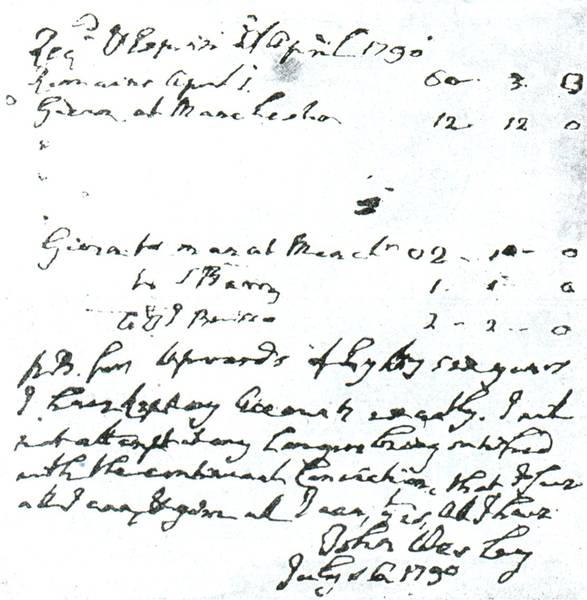 April 1790
Remains April 1. 60 3
Given at Manchester 12 12 0
"
Given to man at Manchr 02 10 0
to 1 1 0
to 2 2 0
N.B. For Upwards of Eighty six years
I have kept my Accounts exactly. I will
not attempt it any longer being satisfied
with the continual Conviction, that I save
all I can, & give all I can, yt is, all I have
John Wesley
July 16 1790